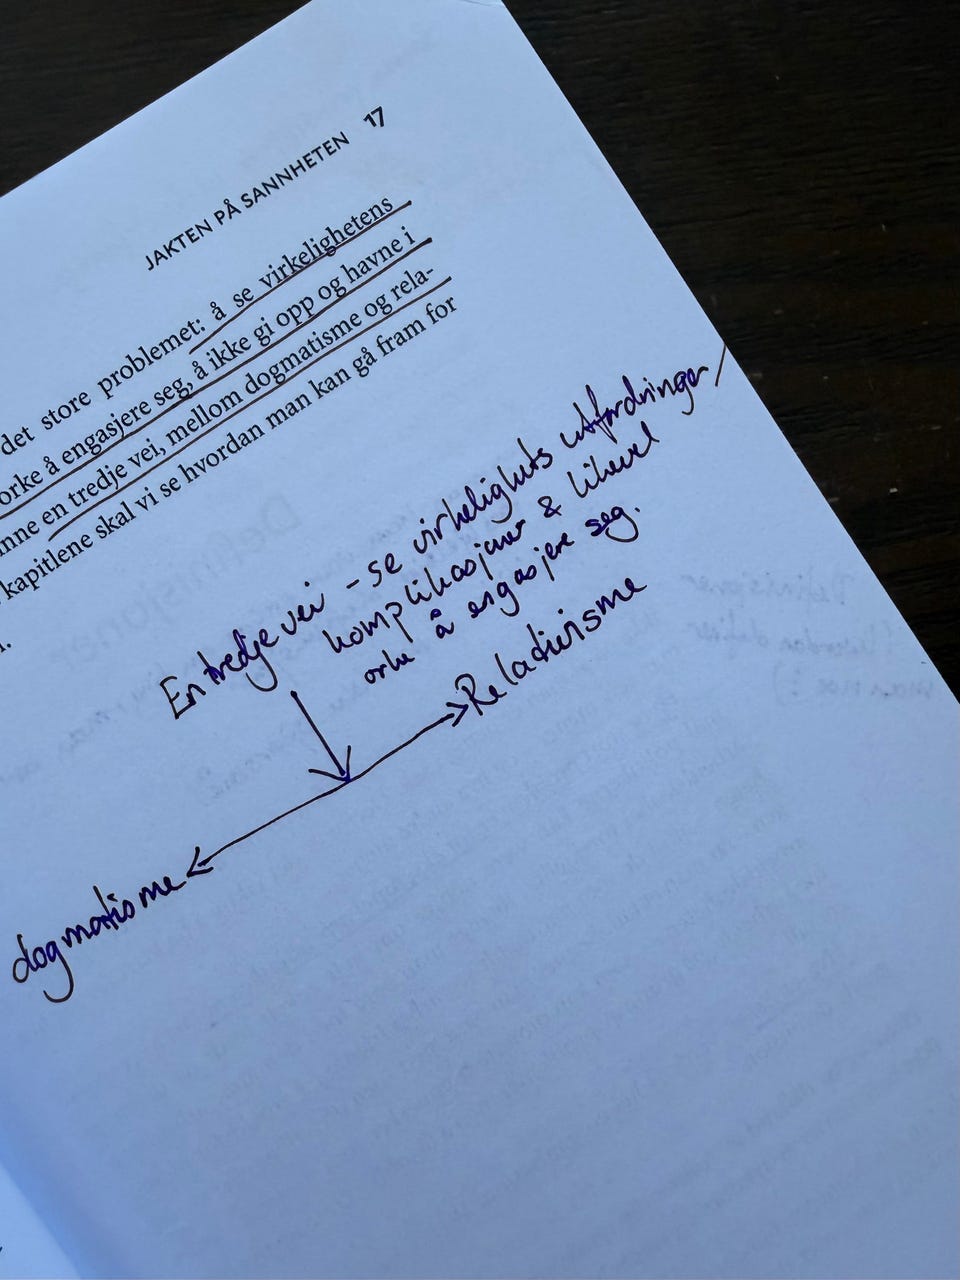 JAKTEN PÅ SANNHETEN 17
det store problemet: å se virkelighetens
orke å engasjere seg, å ikke gi opp og havne i
en tredje vei, mellom dogmatisme og rela-
kapitlene skal vi se hvordan man kan gå fram for
En tredje vei - se virkelighets utfordringer/
komplikasjoner & likevel
orke å engasjere seg.
Relativisme
dogmatisme